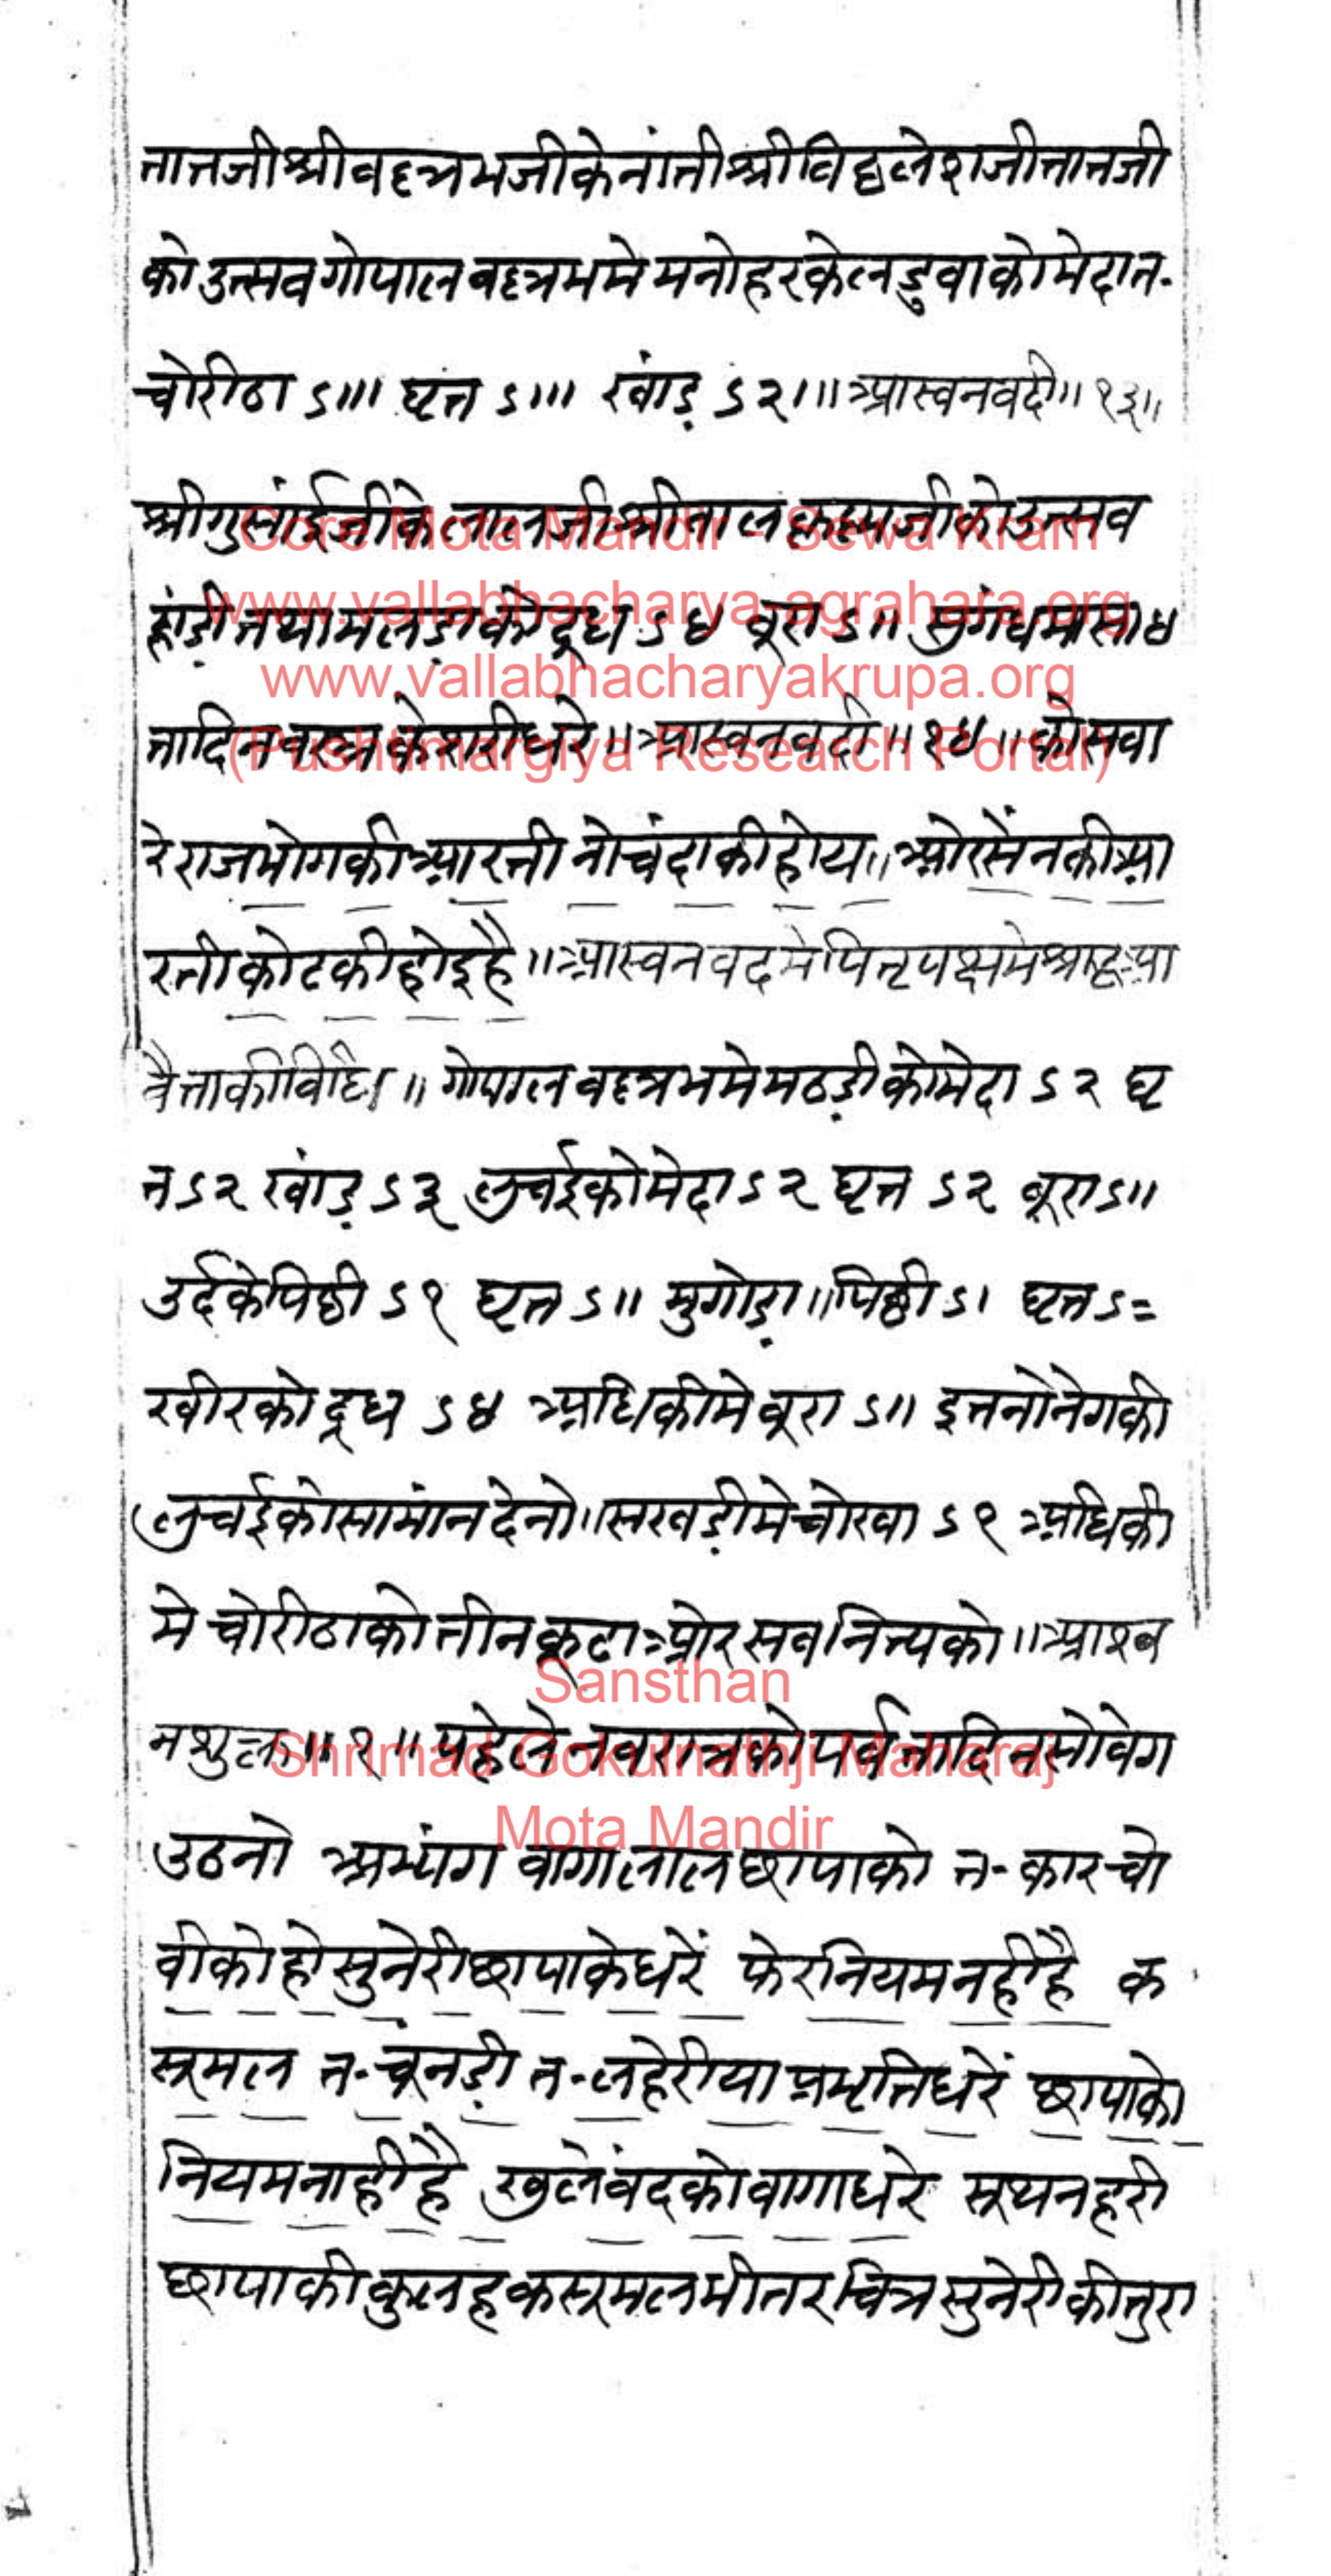 लालजी श्रीवल्लभजी के नांती श्रीविठ्ठलेशजी लालजी
को उत्सव गोपालवल्लभ मे मनोहर के लडुवा को मेदा त॰
चोरीठा ऽ।।। घृत ऽ।।। खांड़ ऽ२। ॥ आस्वन वदी ॥ १३॥
श्रीगुसांईजी के लालजी श्रीबालकृष्णजी को उत्सव
हांड़ी तथा मलड़ा को दूध ऽ४ बूरा ऽ॥ सुगंध मासा ४
तादिन वस्त्र केसरी धरे ॥ आस्वन वदी ॥ १४ ॥ को सवा
रे राजभोग की आरती नोचंदा की होय ॥ ओर सेंन की आ
रती कोट की होइ है ॥ आस्वन वद मे पितृपक्ष मे श्राद्ध आ
वै ताकी विधि ॥ गोपालवल्लभ मे मठड़ी को मेदा ऽ२ घृ
त ऽ२ खांड़ ऽ३ लुचई को मेदा ऽ२ घृत ऽ२ बूरा ऽ॥
उर्द के पिठी ऽ१ घृत ऽ॥ मुगोड़ा ॥ पिठी ऽ। घृत ऽ=
खीर को दूध ऽ४ अधिकी मे बूरा ऽ॥ इतनो नेग की
लुचई को सामांन देनो ॥ सखड़ी मे चोखा ऽ१ अधिकी
मे चोरीठा को तीनकूटा ओर सब नित्य को ॥ आश्व
न शुक्ल ॥ १ ॥ पहेले नवरात्र को पर्व तादिन सो वेग
उठनो अभ्यंग वागा लाल छापा को त॰ कारचो
वी को हो सुनेरी छापा के धरें फेर नियम नहीं है क
सूमल त॰ चूंनड़ी त॰ लहेरीया प्रभृति धरें छापा को
नियम नाहीं है खुलेबंद को वागा धरे सूथन हरी
छापा की कुलह कसूमल भीतर चित्र सुनेरी की तुरा
Core Mota Mandir - Sewa Kram
www.vallabhacharya-agrahara.org
www.vallabhacharyakrupa.org
(Pushtimargiya Research Portal)
Sansthan
Shrimad Gokulnathji Maharaj
Mota Mandir